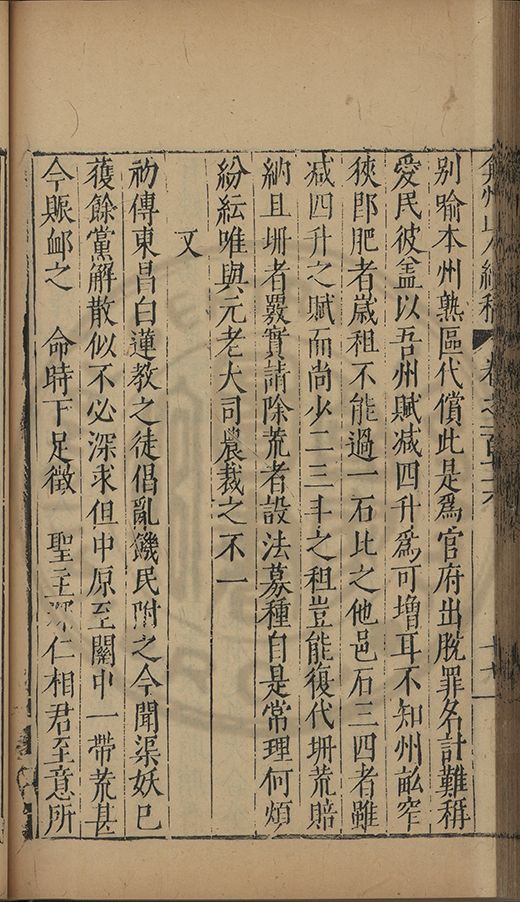 弇州山人續稿 卷之一百 十六
別喻本州熟區代償此是爲官府出脫罪名計難稱
愛民彼盖以吾州賦减四升爲可增耳不知州畝窄
狹卽肥者歲租不能過一石比之他邑石三四者雖
减四升之賦而尚少二三斗之租豈能復代坍荒賠
納且坍者覈實請除荒者設法募種自是常理何煩
紛紜唯與元老大司農裁之不一
又
初傳東昌白蓮教之徒倡亂饑民附之今聞渠妖已
獲餘黨解散似不必深求但中原至關中一帶荒甚
今賑邮之 命時下足徵 聖主 仁相君至意所